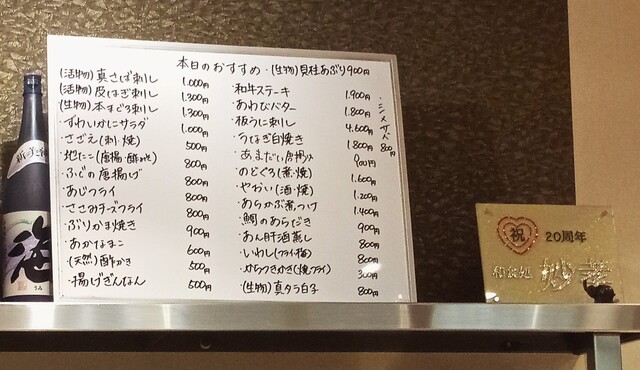 本日のおすすめ
・(生物)貝柱あぶり900円
(活物)真さば刺し 1.000円
(活物)皮はぎ刺し 1.300円
(生物)本まぐろ刺し 1.300円
・ずわいかにサラダ 1.000円
・さざえ(刺・焼) 500円
・地たこ(唐揚・酢みそ) 800円
・ふぐの唐揚げ 800円
・あじフライ 800円
・ささみチーズフライ 800円
・ぶりかま焼き 900円
・あかなまこ 600円
・(天然)酢かき 500円
・揚げぎんなん 500円
・和牛ステーキ 1.900円
・あわびバター 1.800円
・板うに刺し 4.600円
・うなぎ白焼き 1.800円
・あまだい 900円
・のどぐろ(煮・焼) 1.600円
・やがい(酒・焼) 1.200円
・あらかぶ煮つけ 1.400円
・鯛のあらだき 900円
・あん肝酒蒸し 800円
・いわし(フライ・梅) 800円
・からつきかき(焼・フライ) 300円
・(生物)真タラ白子 800円
800円
海
うみ
祝 20周年
和食処